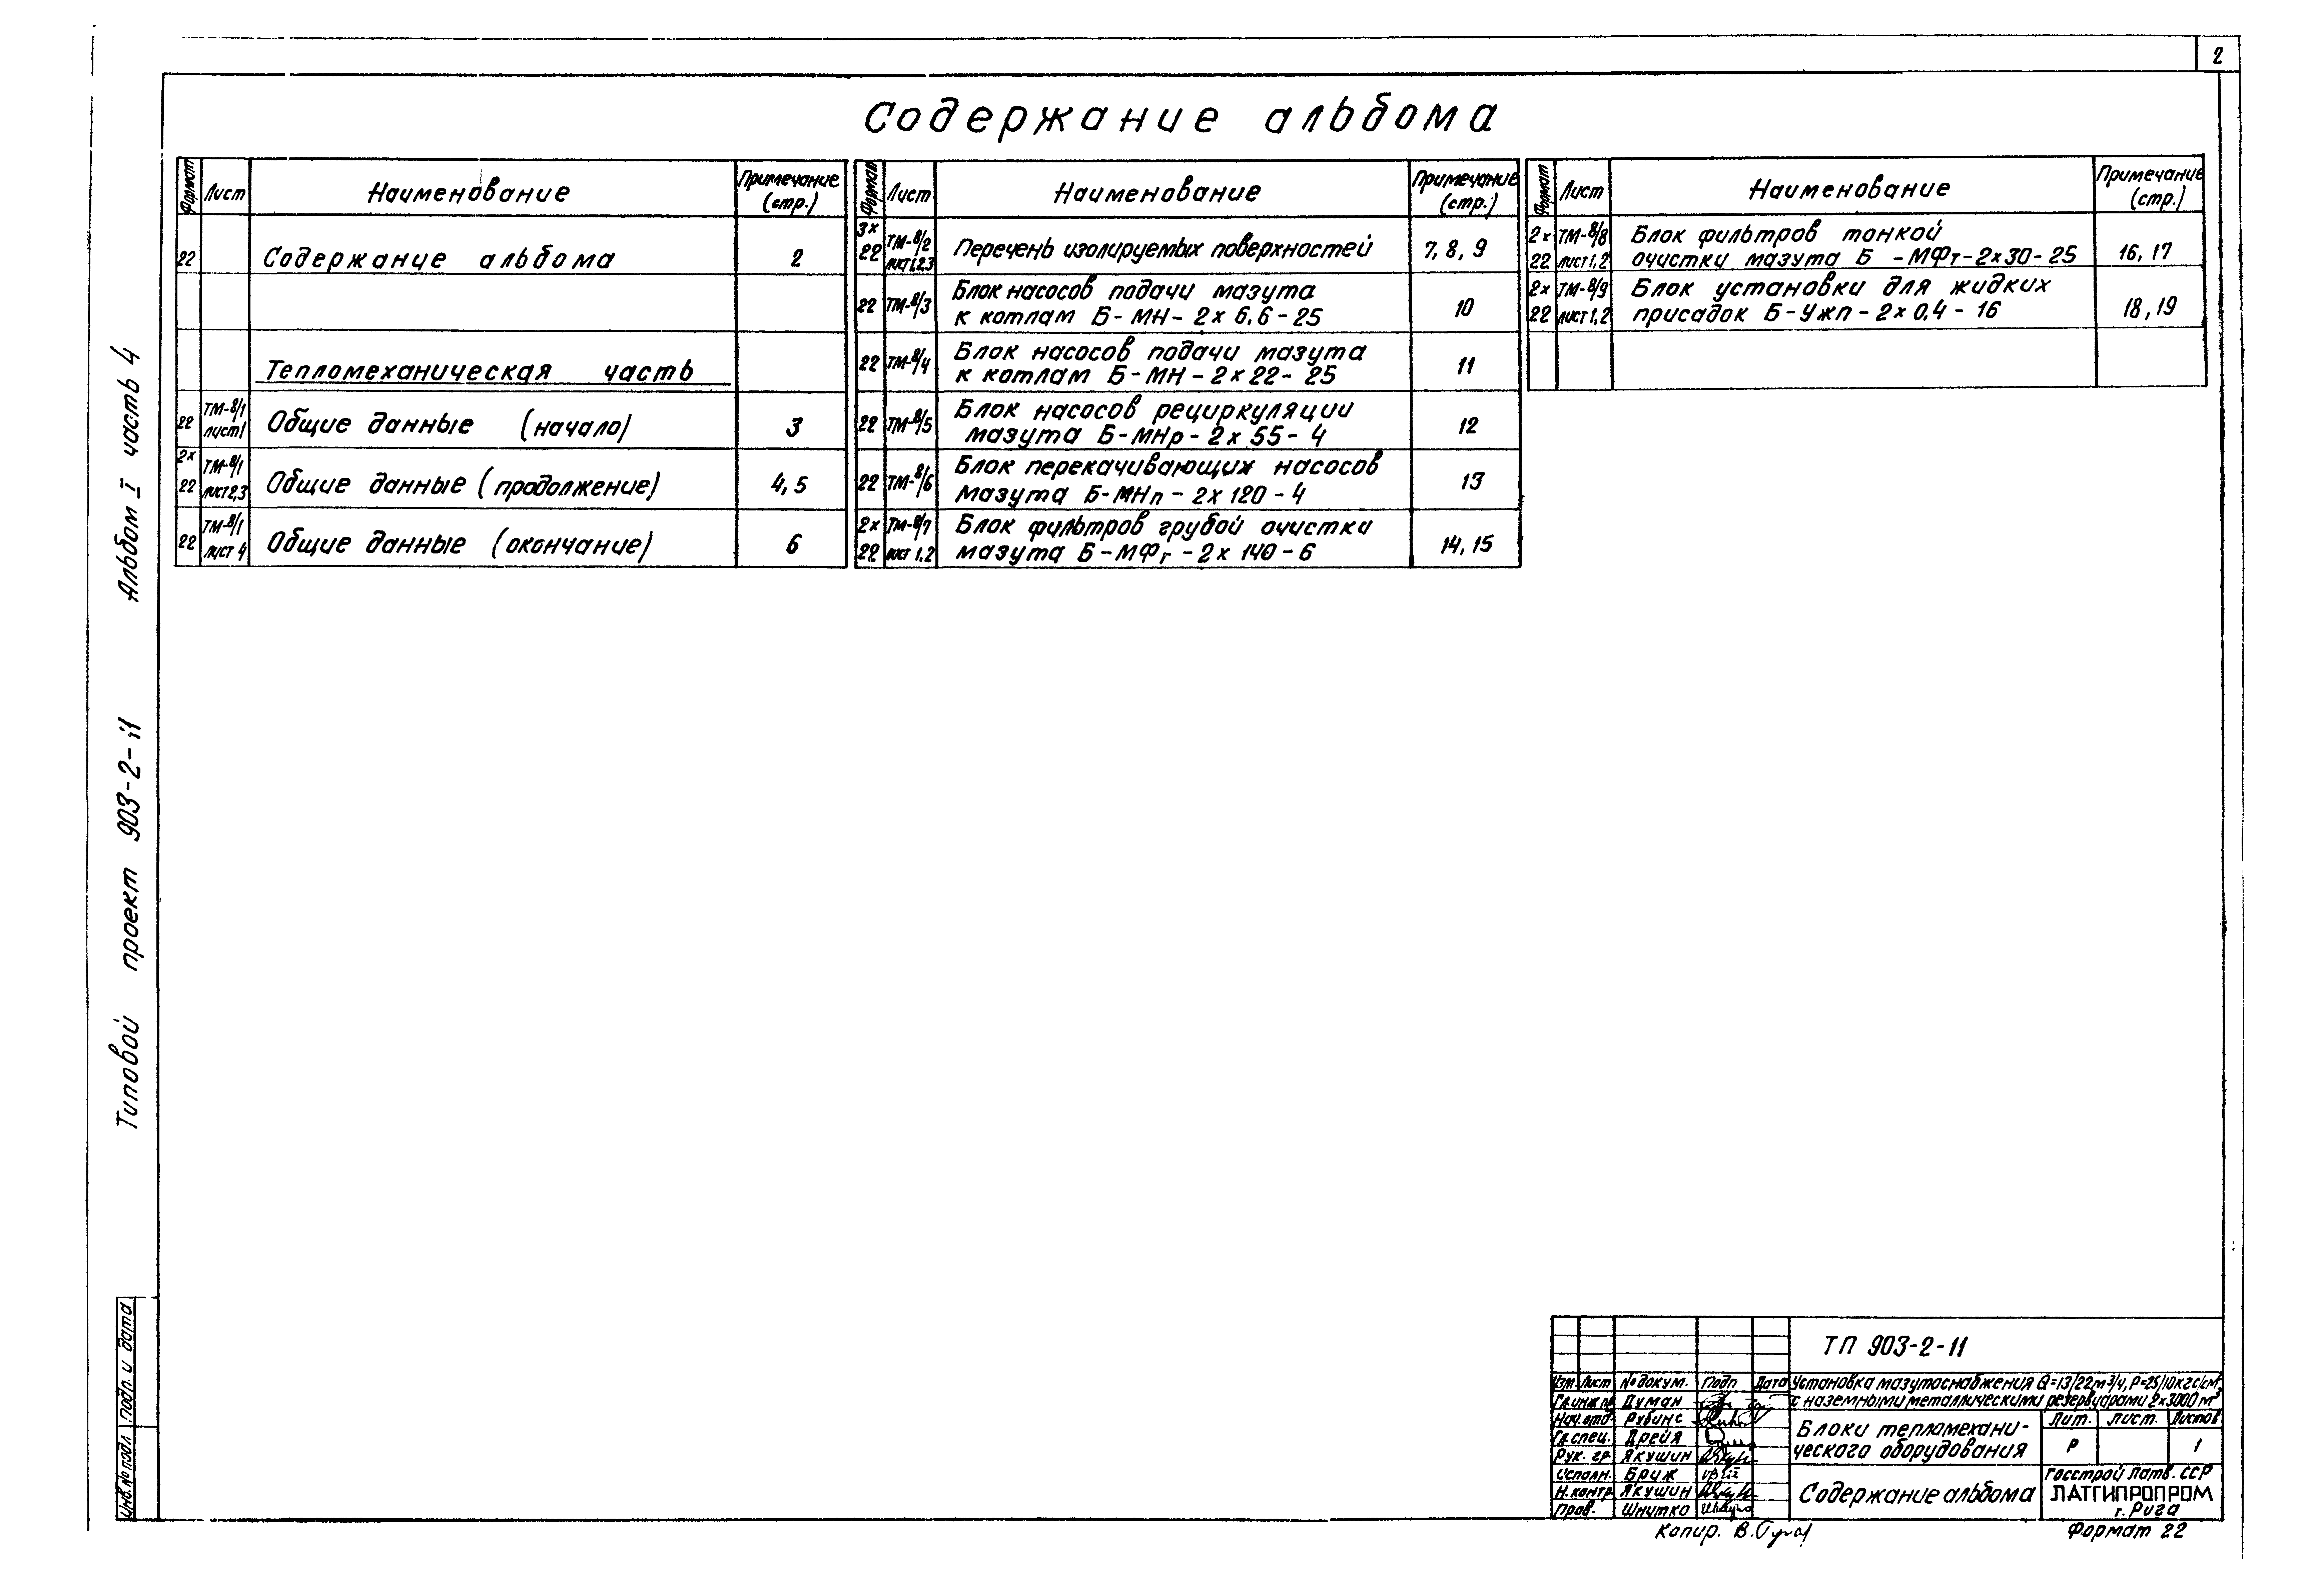 2
Содержание альбома
Формат Лист Наименование Примечание (стр.)
22 Содержание альбома 2
Тепломеханическая часть
22 ТМ-8/1 лист 1 Общие данные (начало) 3
2х22 ТМ-8/1 лист 2,3 Общие данные (продолжение) 4, 5
22 ТМ-8/1 лист 4 Общие данные (окончание) 6
Формат Лист Наименование Примечание (стр.)
3х22 ТМ-8/2 лист 1,2,3 Перечень изолируемых поверхностей 7, 8, 9
22 ТМ-8/3 Блок насосов подачи мазута
к котлам Б-МН-2х6,6-25 10
22 ТМ-8/4 Блок насосов подачи мазута
к котлам Б-МН-2х22-25 11
22 ТМ-8/5 Блок насосов рециркуляции
мазута Б-МНр-2х55-4 12
22 ТМ-8/6 Блок перекачивающих насосов
мазута Б-МНп-2х120-4 13
2х22 ТМ-8/7 лист 1,2 Блок фильтров грубой очистки
мазута Б-МФг-2х140-6 14, 15
Формат Лист Наименование Примечание (стр.)
2х22 ТМ-8/8 лист 1,2 Блок фильтров тонкой
очистки мазута Б-МФт-2х30-25 16, 17
2х22 ТМ-8/9 лист 1,2 Блок установки для жидких
присадок Б-Ужп-2х0,4-16 18, 19
Типовой проект 903-2-11 Альбом I часть 4
Инв.№ подл подп. и дата
ТП 903-2-11
Изм. Лист № докум. Подп Дата
Установка мазутоснабжения Q=13/22м³/ч, Р=25/10кгс/см²
с наземными металлическими резервуарами 2х3000 м³
Гл.инж.пр Думан
Нач.отд. Рубинс
Гл.спец. Дрейя
Рук. гр Якушин
Исполн. Бриж
Н.контр Якушин
Пров. Шнитко
Блоки тепломехани-
ческого оборудования
Лит. Лист. Листов
Р 1
Содержание альбома
Госстрой Латв. ССР
ЛАТГИПРОПРОМ
г. Рига
Копир. В.
Формат 22